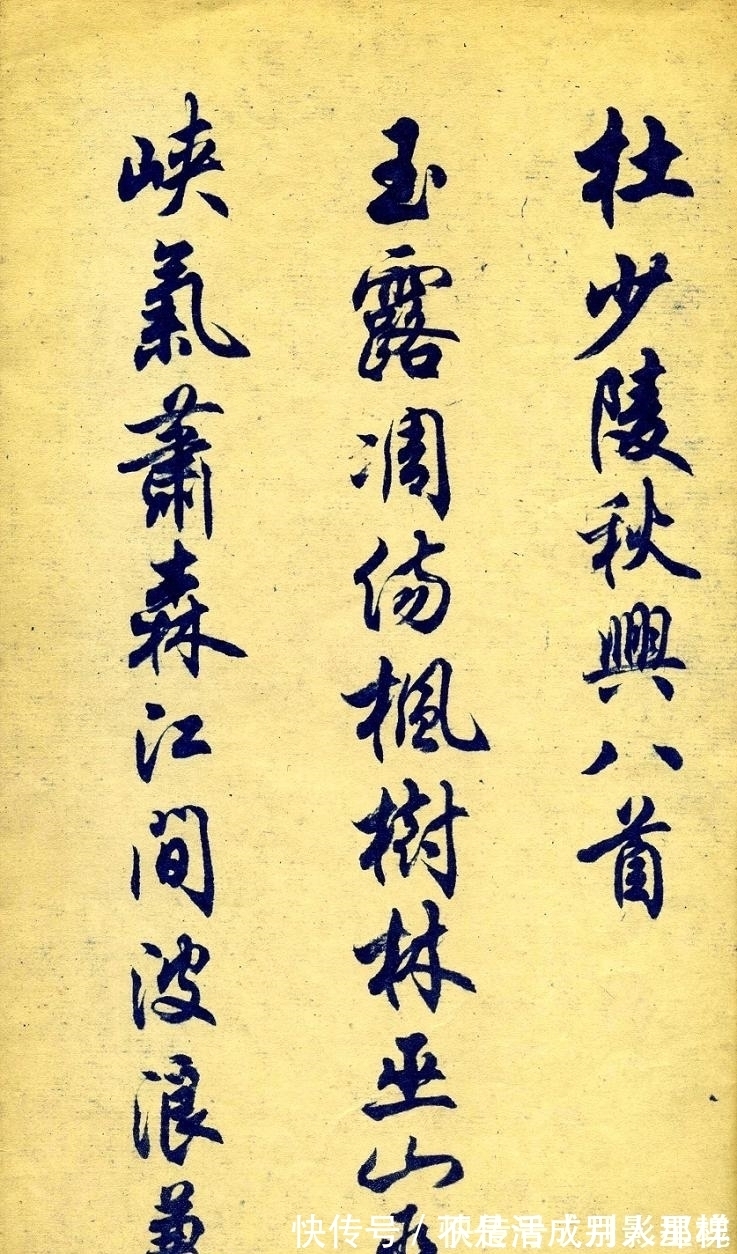 杜少陵秋興八首
玉露凋傷楓樹林巫山
峽氣蕭森江間波浪
快传号 /